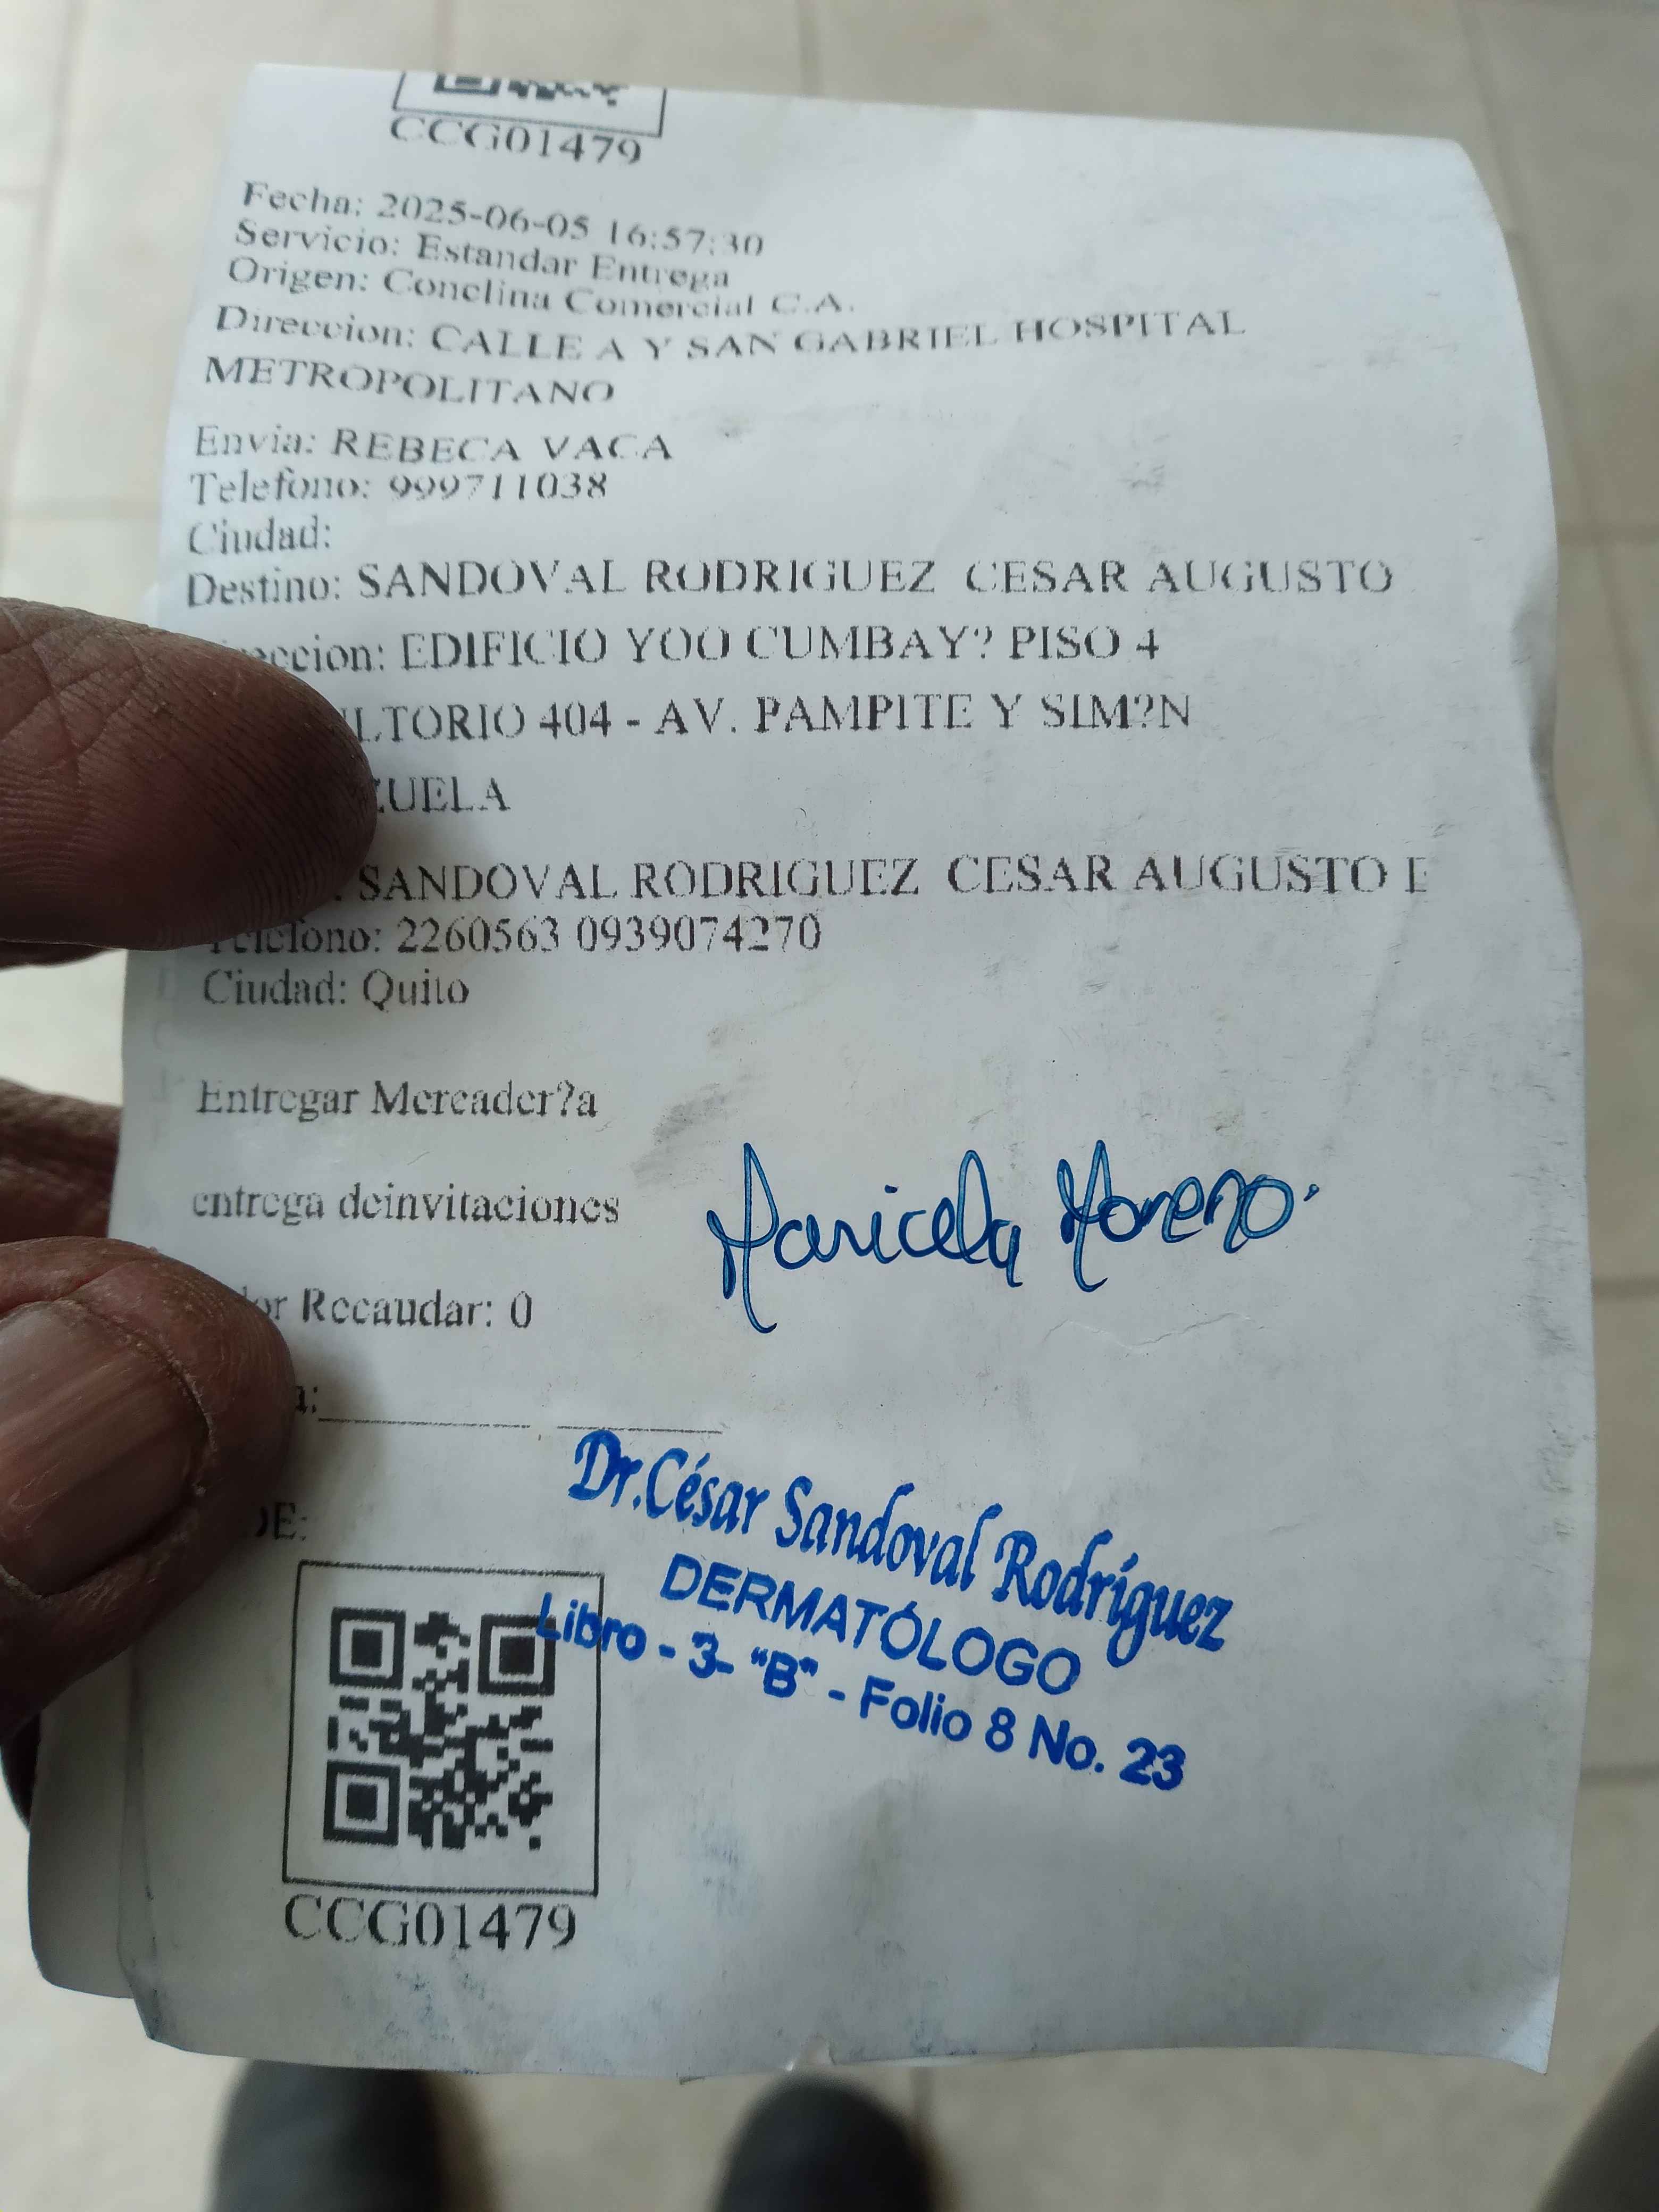 CCG01479
Fecha: 2025-06-05 16:57:30
Servicio: Estandar Entrega
Origen: Conclina Comercial C.A.
Direccion: CALLE A Y SAN GABRIEL HOSPITAL
METROPOLITANO
Envia: REBECA VACA
Telefono: 999711038
Ciudad:
Destino: SANDOVAL RODRIGUEZ CESAR AUGUSTO
eccion: EDIFICIO YOO CUMBAY? PISO 4
LTORIO 404 - AV. PAMPITE Y SIM?N
ZUELA
SANDOVAL RODRIGUEZ CESAR AUGUSTO E
Telefono: 2260563 0939074270
Ciudad: Quito
Entregar Mercader?a
entrega deinvitaciones
Maricela Moreno.
or Recaudar: 0
a:
Dr. César Sandoval Rodríguez
DERMATÓLOGO
Libro - 3- "B" - Folio 8 No. 23
DE:
CCG01479